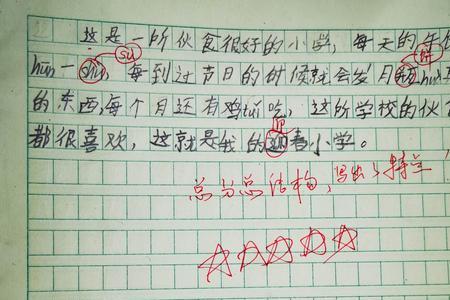 这是一所伙食很好的小学，每天的午饭
hūn一shù su
每到过节日的时候就会发月饼
的东西，每个月还有鸡tuǐ吃，这所学校的伙
都很喜欢，这就是我的迎春小学。
总分总结构，写出了特点